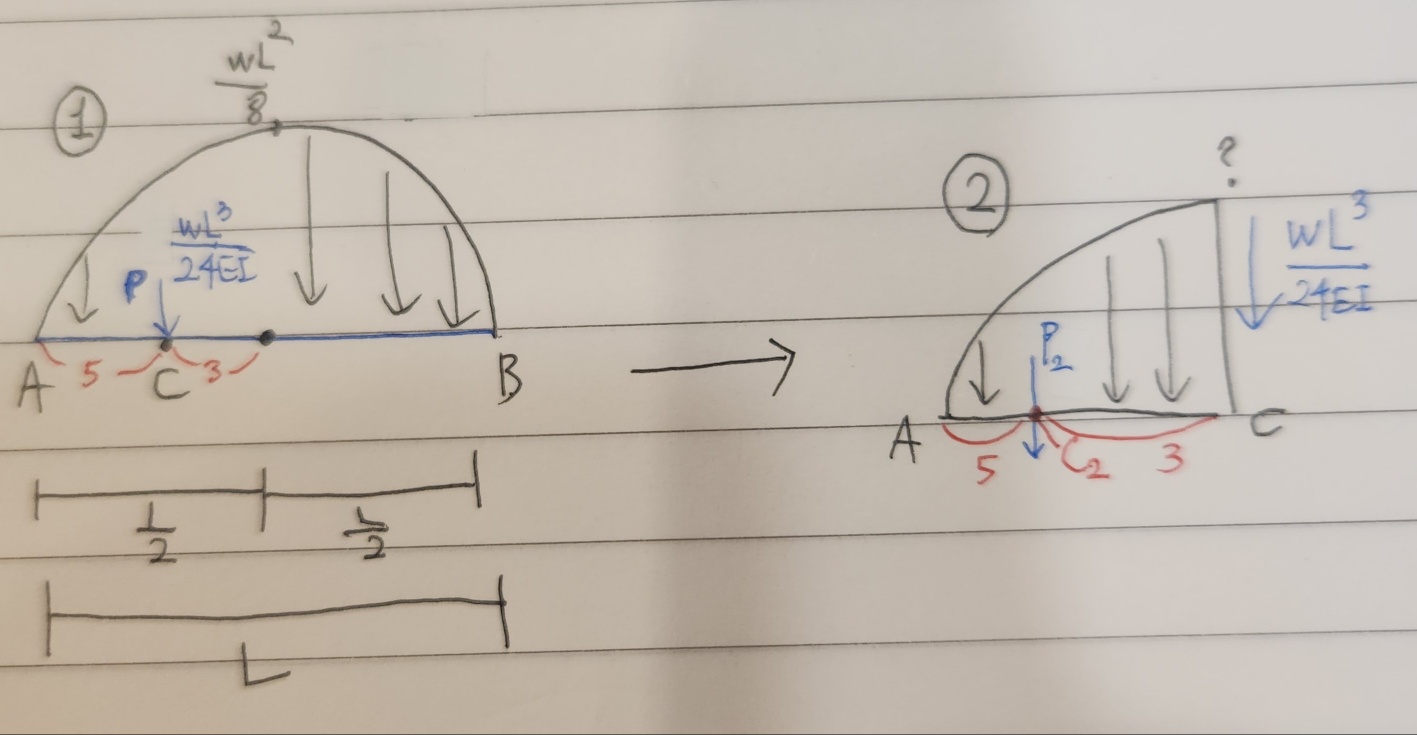 ①
wL²/8
P
wL³/24EI
A 5 C 3 B
L/2 L/2
L
②
?
P₂
wL³/24EI
A 5 C₂ 3 C